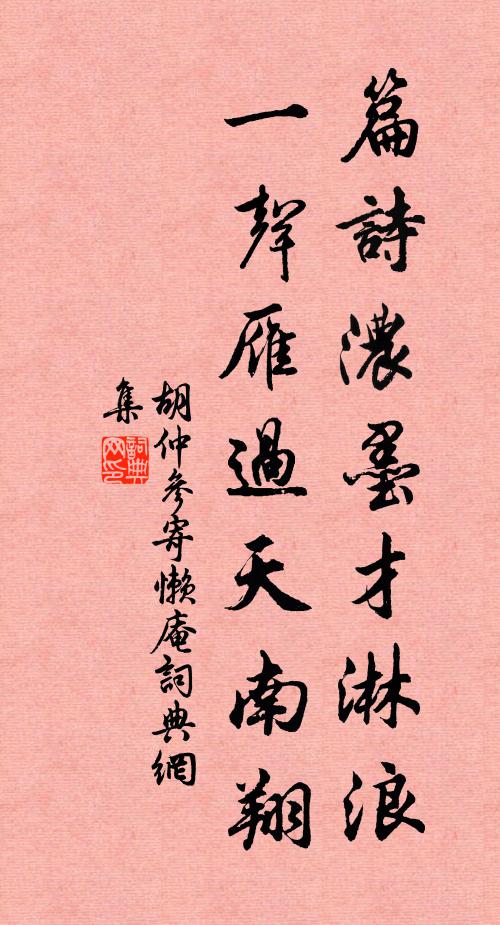 篇詩濃墨才淋浪
一聲雁過天南翔
胡仲參寄懶庵詞典網
集
詞典網印